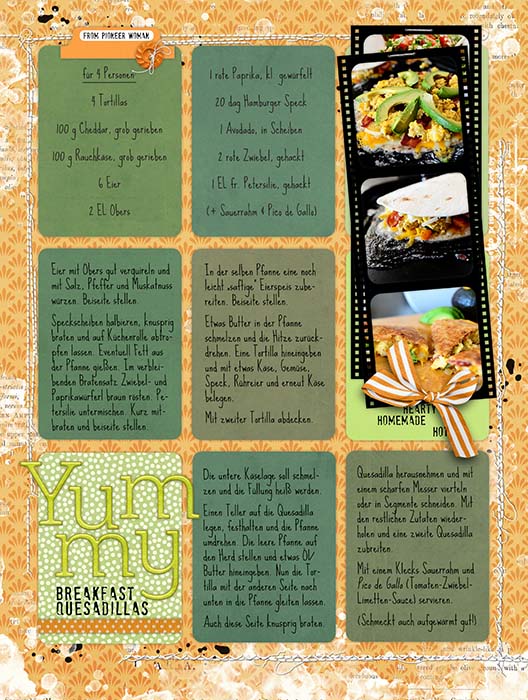 FROM PIONEER WOMAN
für 4 Personen
4 Tortillas
100 g Cheddar, grob gerieben
100 g Rauchkäse, grob gerieben
6 Eier
2 EL Obers
1 rote Paprika, kl. gewürfelt
20 dag Hamburger Speck
1 Avodado, in Scheiben
2 rote Zwiebel, gehackt
1 EL fr. Petersilie, gehackt
(+ Sauerrahm & Pico de Gallo)
Eier mit Obers gut verquireln und
mit Salz, Pfeffer und Muskatnuss
würzen. Beiseite stellen.
Speckscheiben halbieren, knusprig
braten und auf Küchenrolle abtro-
pfen lassen. Eventuell Fett aus
der Pfanne gießen. Im verblei-
benden Bratensatz Zwiebel- und
Paprikawürfel braun rösten. Pe-
tersilie untermischen. Kurz mit-
braten und beiseite stellen.
In der selben Pfanne eine noch
leicht „saftige" Eierspeis zube-
reiten. Beiseite stellen.
Etwas Butter in der Pfanne
schmelzen und die Hitze zurück-
drehen. Eine Tortilla hineingeben
und mit etwas Käse, Gemüse,
Speck, Rührei­er und erneut Käse
belegen.
Mit zweiter Tortilla abdecken.
HEARTY
HOMEMADE
HOT
Yum
my
BREAKFAST
QUESADILLAS
Die untere Käselage soll schmel-
zen und die Füllung heiß werden.
Einen Teller auf die Quesadilla
legen, festhalten und die Pfanne
umdrehen. Die leere Pfanne auf
den Herd stellen und etwas Öl/
Butter hineingeben. Nun die Tor-
tilla mit der anderen Seite nach
unten in die Pfanne gleiten lassen.
Auch diese Seite knusprig braten.
Quesadilla herausnehmen und mit
einem scharfen Messer vierteln
oder in Segmente schneiden. Mit
den restlichen Zutaten wieder-
holen und eine zweite Quesadilla
zubreiten.
Mit einem Klecks Sauerrahm und
Pico de Gallo (Tomaten-Zwiebel-
Limetten-Sauce) servieren.
(Schmeckt auch aufgewärmt gut!)